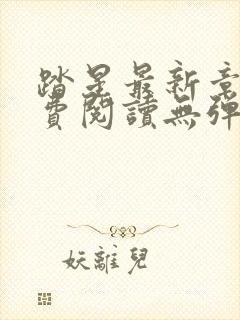 踏星最新章
費閱讀無彈
妖離兒